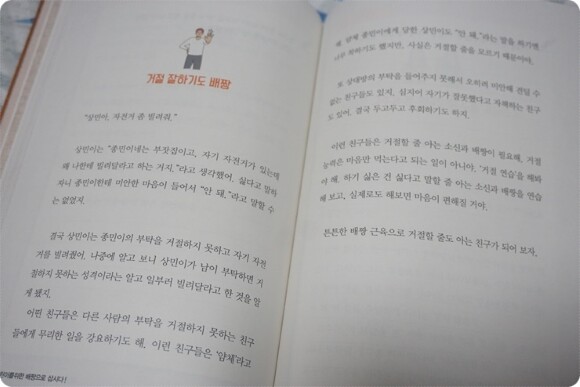 거절 잘하기도 배짱
"상민아, 자전거 좀 빌려줘."
상민이는 "종민이네는 부잣집이고, 자기 자전거가 있는데
왜 나한테 빌려달라고 하는 거지."라고 생각했어. 싫다고 말하
자니 종민이한테 미안한 마음이 들어서 "안 돼."라고 말할 수
는 없었지.
결국 상민이는 종민이의 부탁을 거절하지 못하고 자기 자전
거를 빌려줬어. 나중에 알고 보니 상민이가 남이 부탁하면 거
절하지 못하는 성격이라는 걸 알고 일부러 빌려달라고 한 것을 알
게 됐지.
어떤 친구들은 다른 사람의 부탁을 거절하지 못하는 친구
들에게 무리한 일을 강요하기도 해. 이런 친구들은 '얌체'라고
배짱으로 삽시다!
해. 얌체 종민이에게 당한 상민이도 "안 돼."라는 말을 하기엔
너무 착하기도 했지만, 사실은 거절할 줄을 모르기 때문이야.
또 상대방의 부탁을 들어주지 못해서 오히려 미안해 견딜 수
없는 친구들도 있지. 심지어 자기가 잘못했다고 자책하는 친구
도 있어. 결국 두고두고 후회하기도 하지.
이런 친구들은 거절할 줄 아는 소신과 배짱이 필요해. 거절
능력은 마음만 먹는다고 되는 일이 아니야. '거절 연습'을 해봐
야 해. 하기 싫은 건 싫다고 말할 줄 아는 소신과 배짱을 연습
해 보고, 실제로도 해보면 마음이 편해질 거야.
튼튼한 배짱 근육으로 거절할 줄도 아는 친구가 되어 보자.